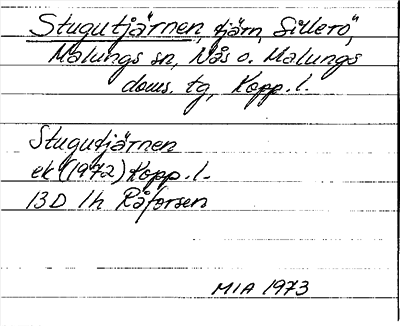 Stugutjärnen, tjärn, Sillerö,
Malungs sn, Nås o. Malungs
doms. tg, Kopp. l.
Stugutjärnen
ek (1972) Kopp. l.
13D 1h Råforsen
MIA 1973